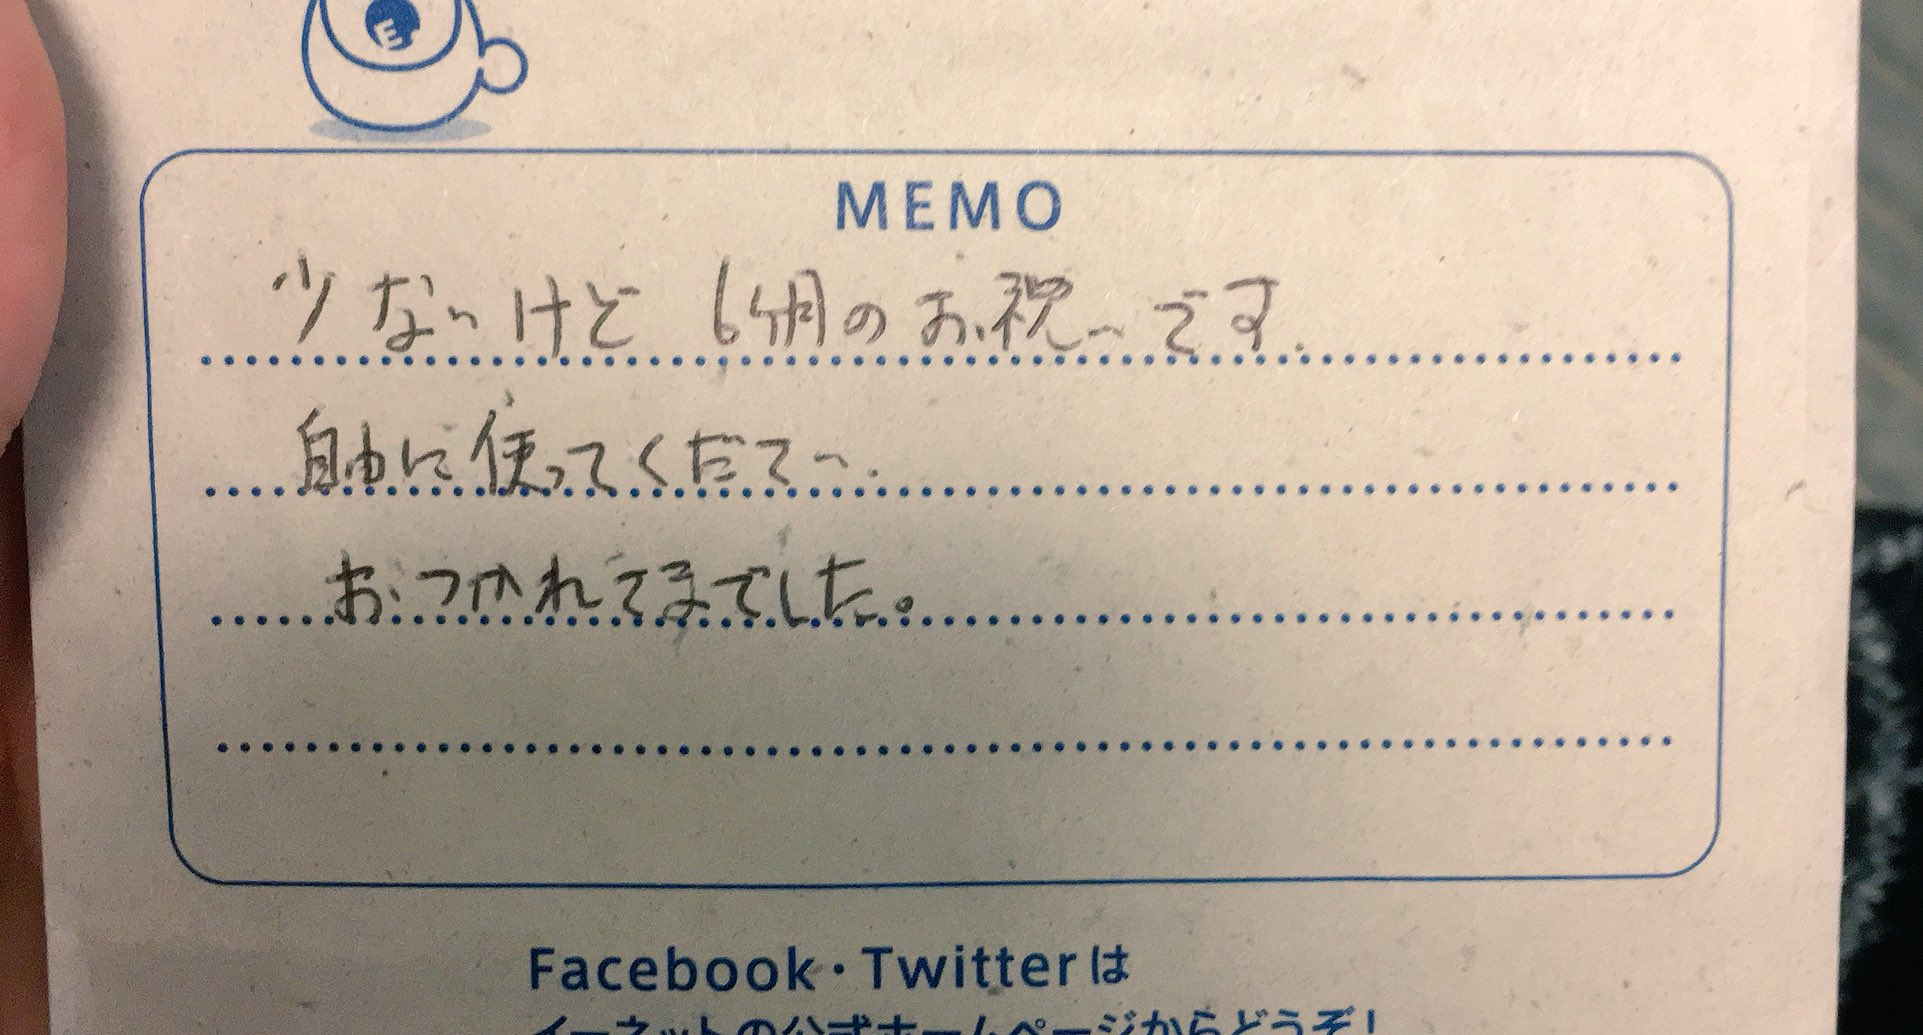 MEMO
少ないけど 6ヶ月のお祝いです.
自由に使ってください.
おつかれさまでした。
Facebook・Twitterは
イーネットの公式ホームページからどうぞ!